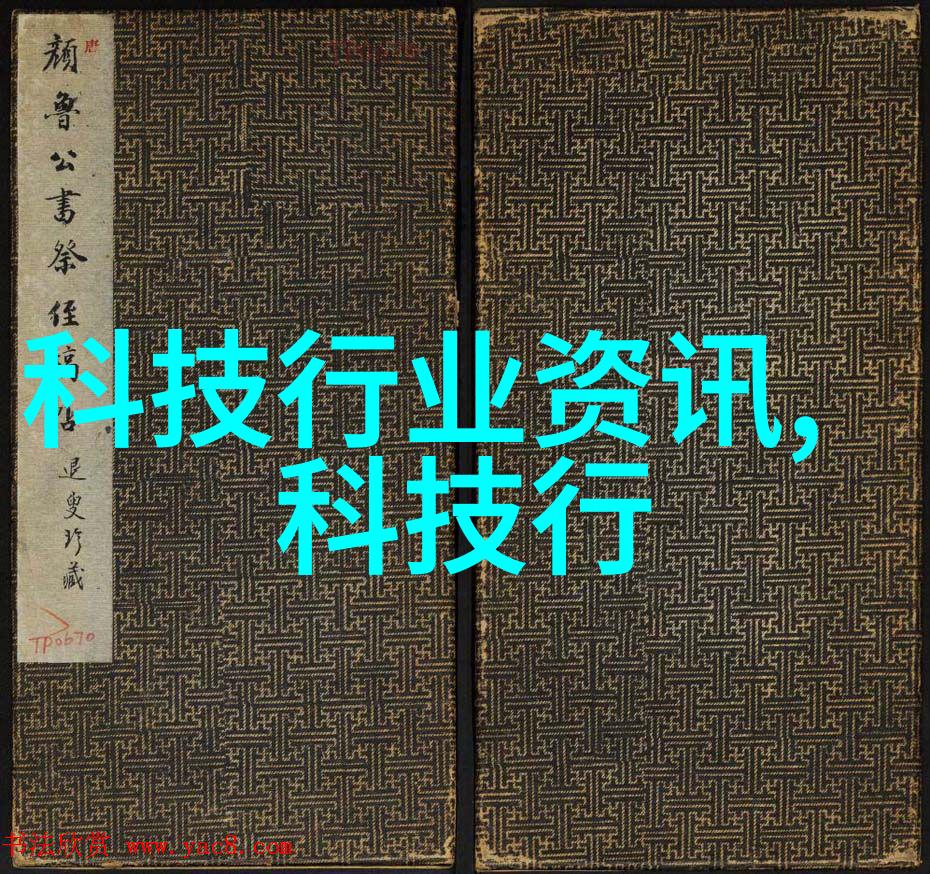 唐
颜鲁公书祭侄稿
退叟珍藏
TP0670
科技行业资讯,
科技行
书法欣赏 www.yac8.com